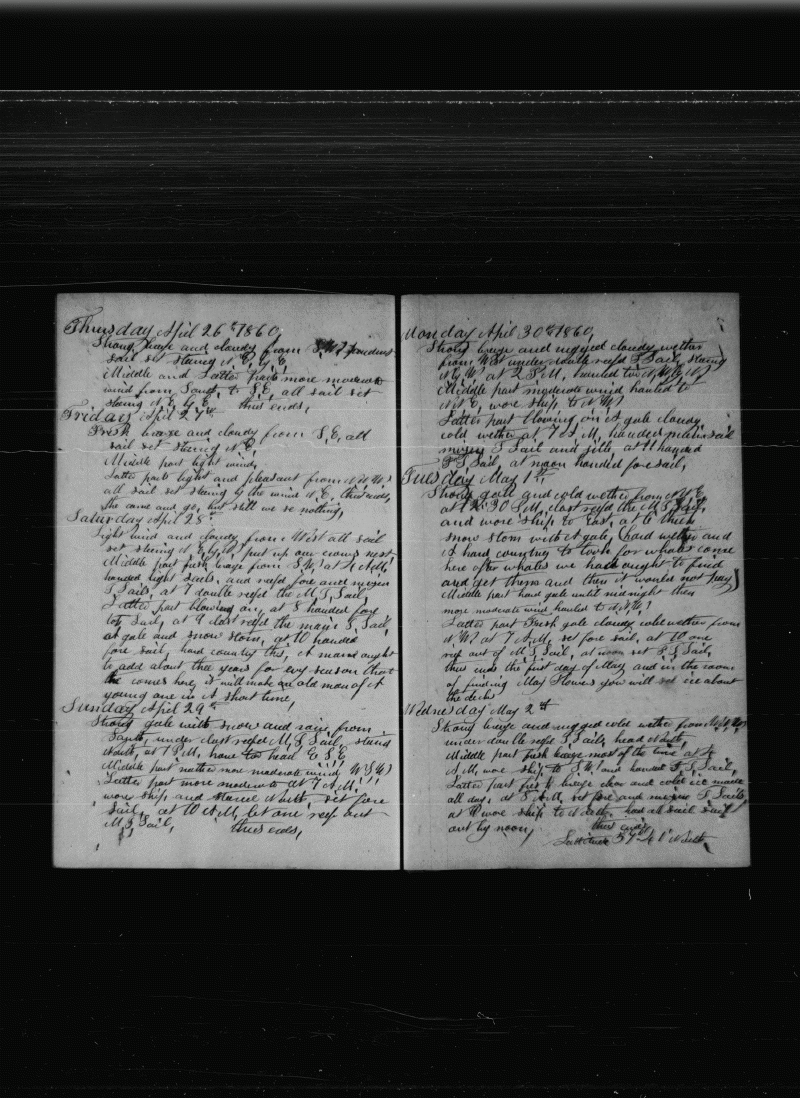 Thursday April 26th 1860,
Strong breeze and cloudy from
sail set stering N. E. by E.
Middle and Latter parts more moderate
wind from South, to S. E. all sail set
stering N. E. by E. thus ends,
Friday April 27th
Fresh breeze and cloudy from S, E, all
sail set stering N, E,
Middle part light wind,
Latter part light and pleasant from N.N.W
all sail set stering by the wind N, E, thus ends,
We come and go, but still we se nothing,
Saturday April 28th
Light wind and cloudy from West all sail
set stering N, E, by N, put up our crows nest
Middle part fresh breeze from S, W, at 4 A.M,
handed light Sails, and reefd fore and mizen
T, Sails, at 7 double reefd the M, T, Sail,
Latter part blowing on, at 8 handed fore
top Sail, at 9 clast reefd the main T, Sail,
at gale and snow storm, at 10 handed
fore sail, hard country this, A man ought
to add about three years for evry season that
he comes here, it will make an old man of A
young one in A short time,
Sunday April 29th
Strong gale with snow and rain from
South, under clast reefd M, T, Sail, stering
North, at 7 P.M, have to head E, S, E,
Middle part rather more moderate wind W.S.W,
Latter part more moderate at 7 A.M.
wore ship and steared North, set fore
Sail, at 10 A,M, let one reef out
M, T, Sail, thus ends,
Monday April 30th 1860,
Strong breeze and rugged cloudy wether
from West under double reefd T, Sails, stering
N, W, at 2 P.M, hauled to
Middle part moderate wind hauled to
N, E, wore ship to N.W,
Latter part blowing on A gale cloudy
cold wether at 7 A, M, handed main sail
mizen T Sail and jibb, at 11 handed
F, T, Sail, at noon handed fore sail,
Tuesday May 1st,
Strong gale and cold wether from N, E,
at 12.30 P,M, clast reefd the M, T, Sail,
and wore ship to East, at 6 thick
snow storm with A gale, (hard wether and
A hard country to look for whales come
here after whales we had ought to find
and get them and then it would not pay)
Middle part hard gale until midnight then
more moderate wind hauled to N.N.W,
Latter part Fresh gale cloudy cold wether from
N.W, at 7 A.M, set fore sail, at 10 one
reef out of M, T, Sail, at noon set F, T, Sail,
thus ends the first day of May and in the room
of finding May Flowers you will se ice about
the deck
Wednesday May 2nd
Strong breeze and rugged cold wether from
under double reefd T, Sails, head North,
Middle part fresh breeze most of the time at 4
A M, wore ship to S.W, and handed F, T, Sail,
Latter part fresh breeze clear and cold ice made
all day, at 8 A.M, set fore and mizen T, Sails,
at wore ship to North, had all sail set
out by noon, thus ends
Lattitude 57°40' North,